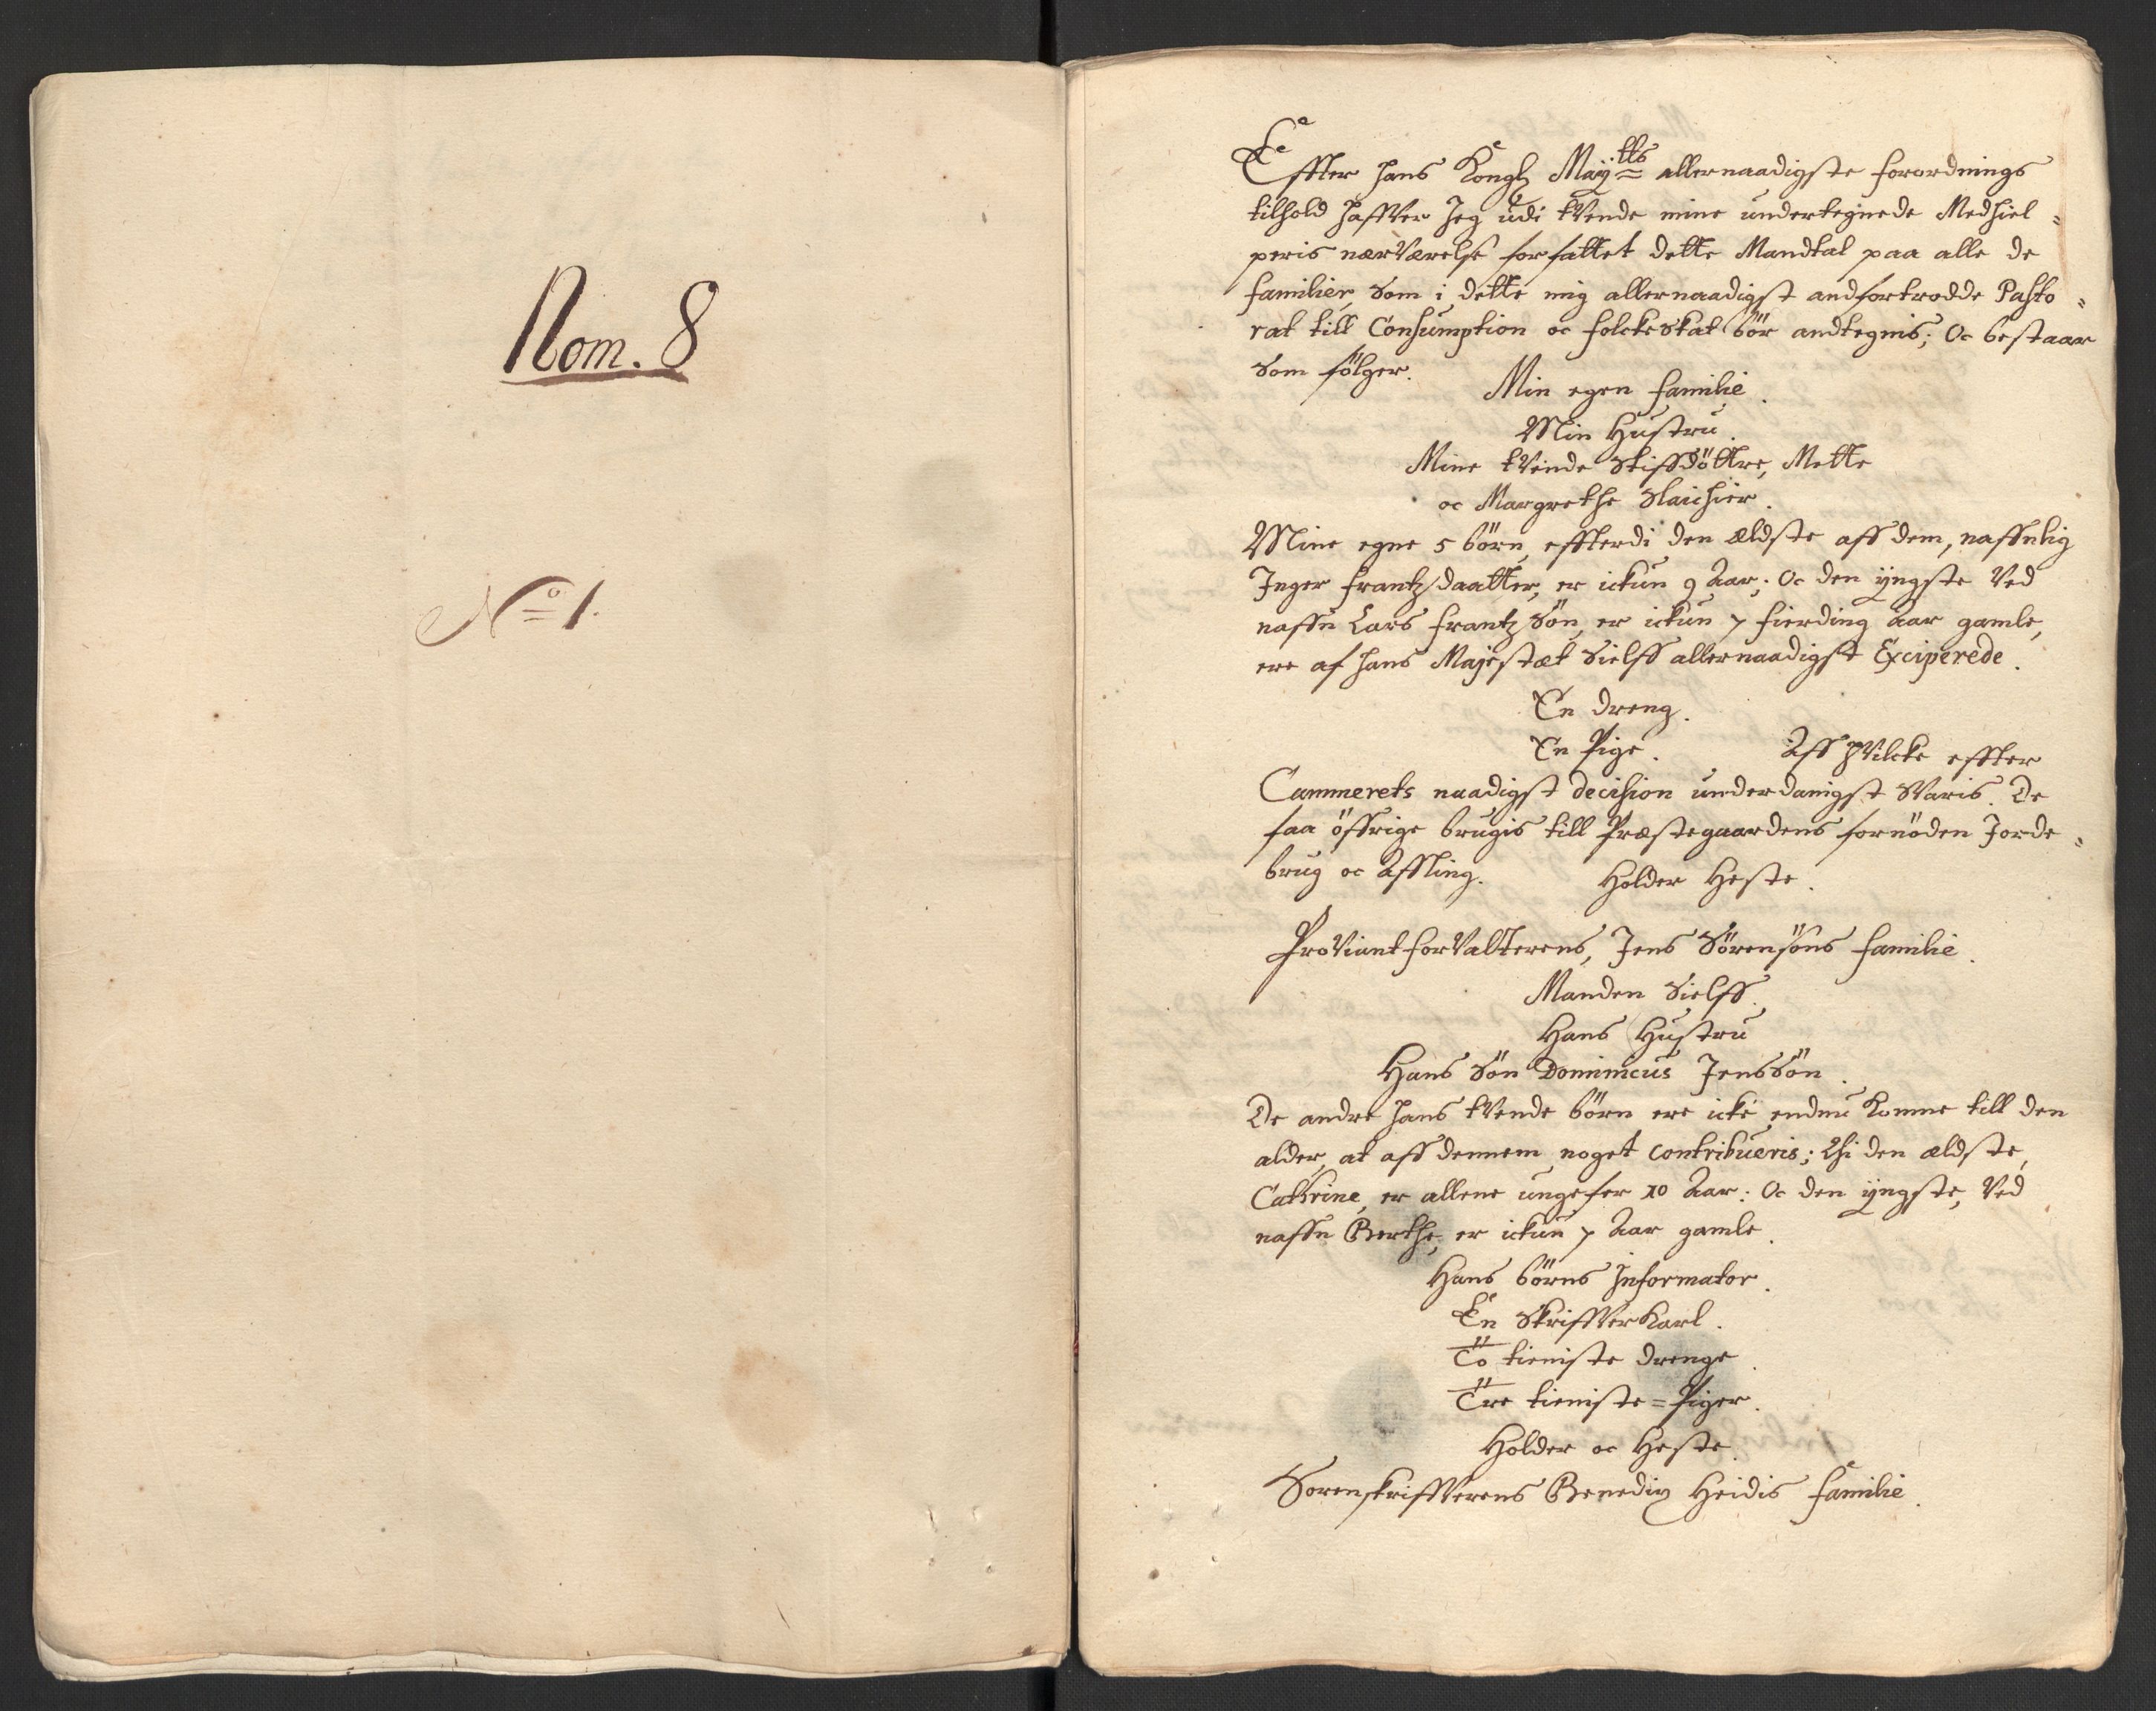 Nom. 8
No 1.
Effter hans Kongl Mayetts allernaadigste forordnings
tilhold haffver Jeg udi tvende mine undertegnede Medhiel=
peris nærværelse forfattet dette Mandtal paa alle de
familier, som i dette mig allernaadigst andfortrodde Pasto=
rat till Consumption oc folckeskat bör andtegnis; Oc bestaar
som fölger.
Min egen familie.
Min Hustru.
Mine tvende Stiffdöttre, Mette
oc Margrethe
Mine egne 5 börn, effterdi den ældste aff dem, naffnlig
Inger frantzdaatter, er ickun 9 Aar; Oc den yngste ved
naffn Lars frantzsön, er ickun 7 fierding Aar gamle,
ere af hans Majestæt sielff allernaadigst Exciperede.
En dreng.
En Pige. Aff hvilcke effter
Cammerets naadigst decision underdanigst svaris. De
faa öffrige brugis till Præstegaardens fornöden Jorde=
brug oc Affling. Holder Heste.
Proviantforvalterens, Jens Sörensöns familie.
Manden Sielff.
Hans Hustru
Hans Sön Dominicus Jenssön.
De andre hans tvende börn ere icke endnu komne till den
alder, at aff dennem noget contribueris; Thi den ældste,
Cathrine, er allene ungefer 10 Aar: Oc den yngste, ved
naffn Berthe, er ickun 7 Aar gamle.
Hans börns Informator.
En Skriffverkarl.
To tieniste drenge.
Tre tieniste=Piger.
Holder oc Heste.
Sorenskriffverens Benedix Heidis familie.